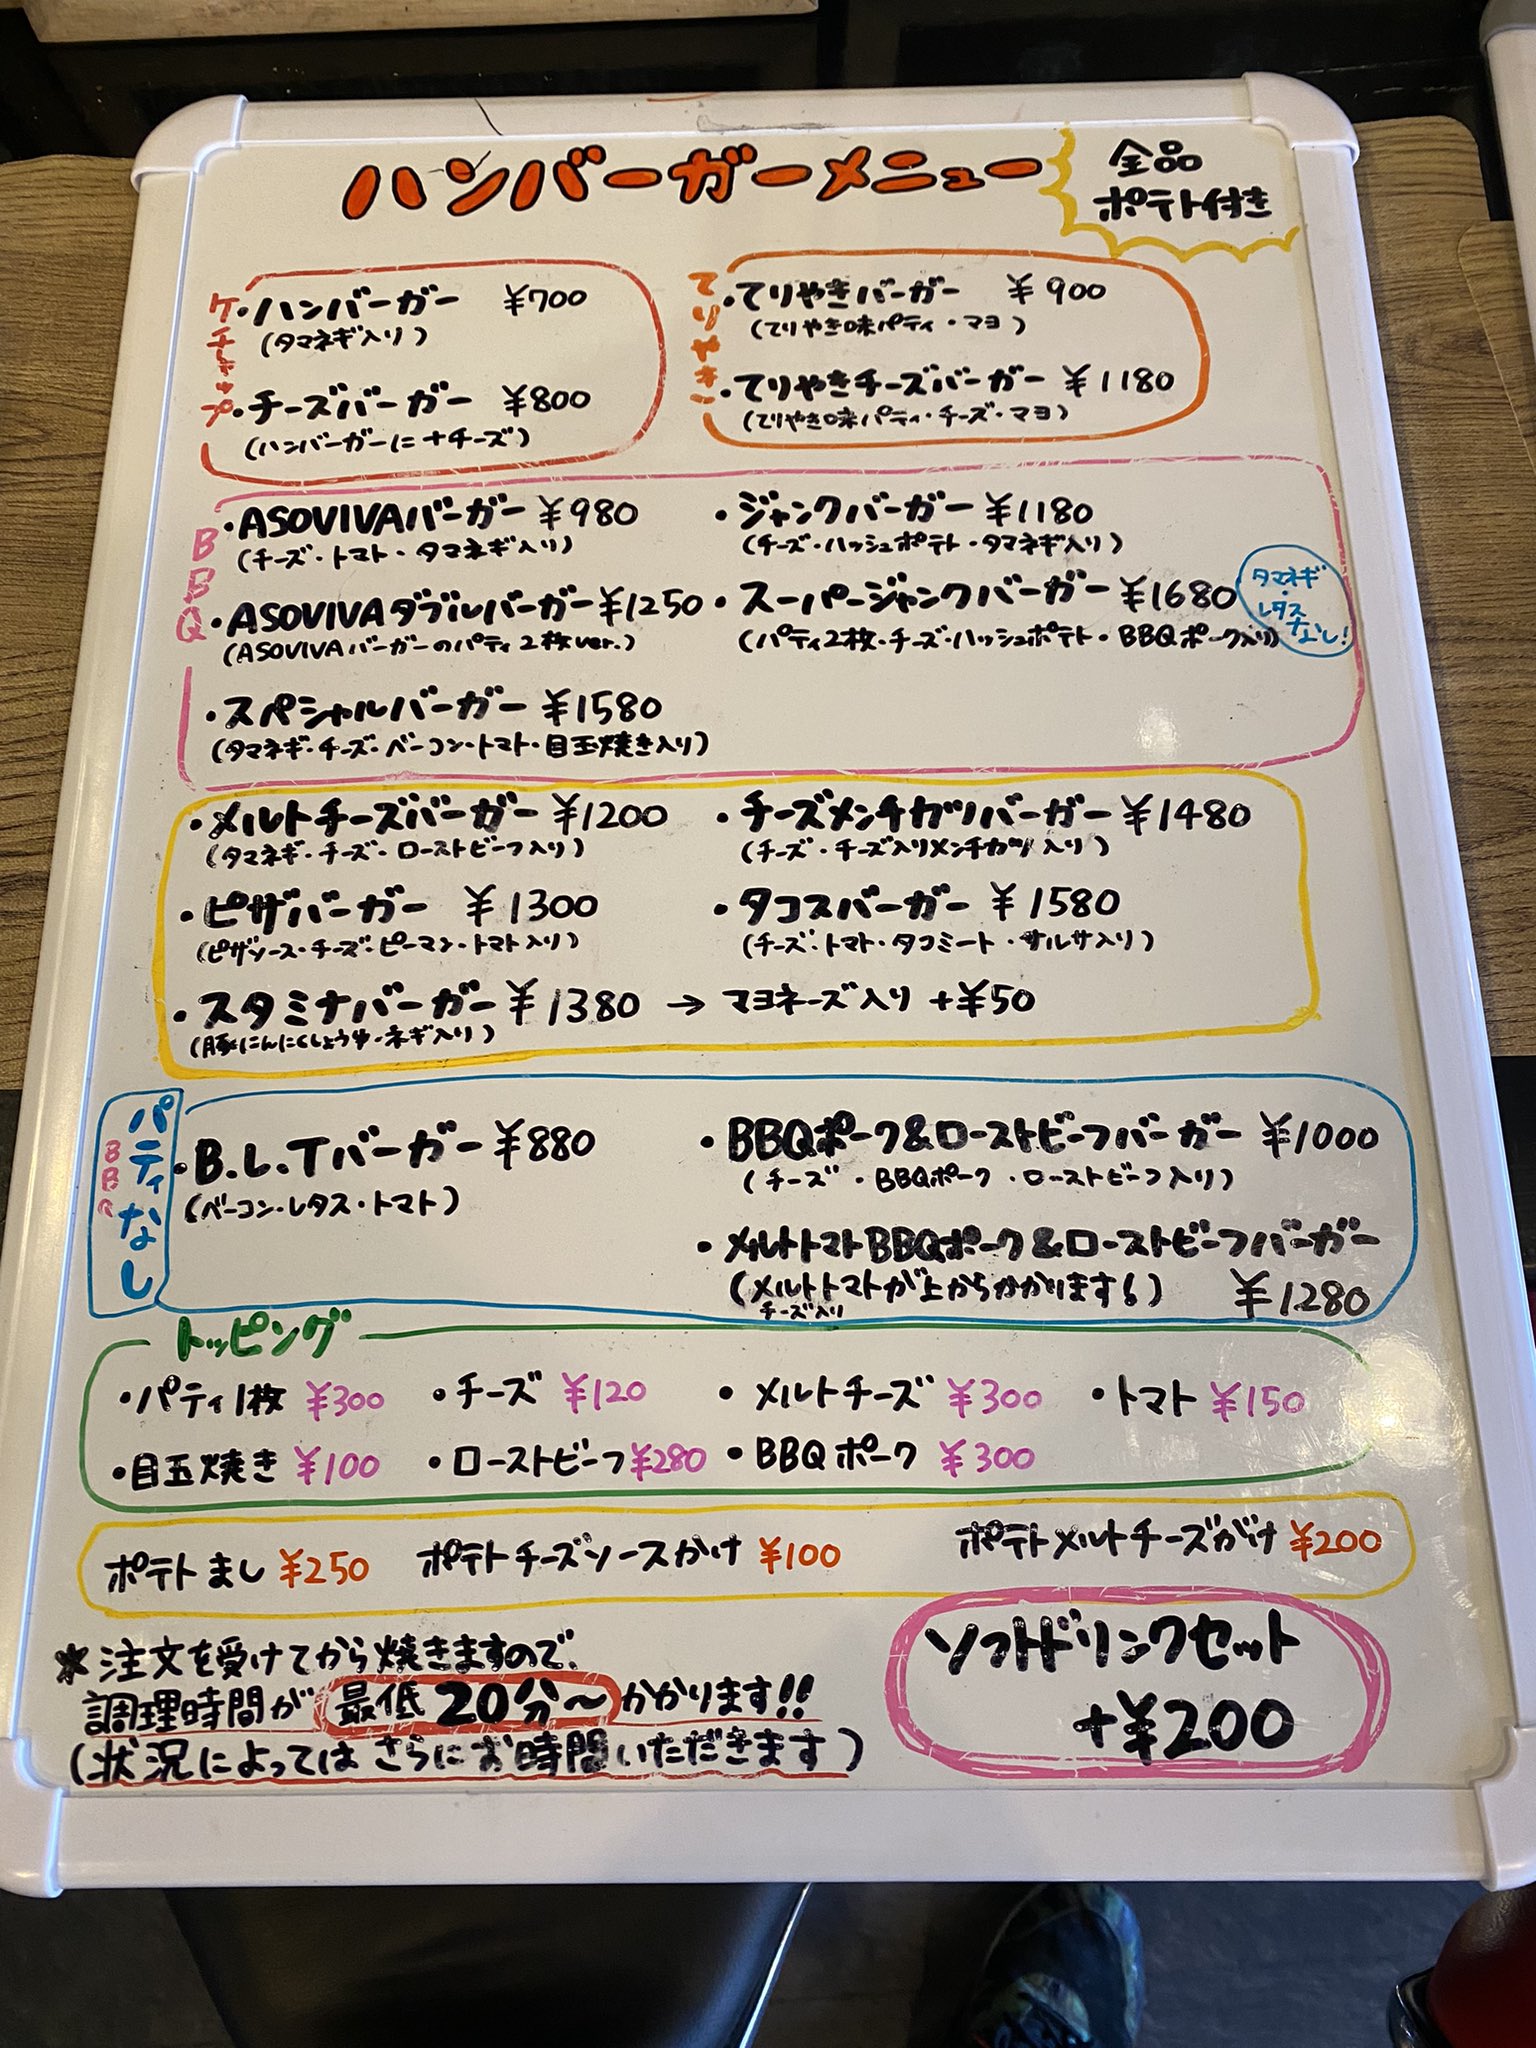 ハンバーガーメニュー
全品
ポテト付き
ケチャップ
・ハンバーガー ¥700
(タマネギ入り)
・チーズバーガー ¥800
(ハンバーガーに+チーズ)
てりやき
・てりやきバーガー ¥900
(てりやき味パティ・マヨ)
・てりやきチーズバーガー ¥1180
(てりやき味パティ・チーズ・マヨ)
BBQ
・ASOVIVAバーガー ¥980
(チーズ・トマト・タマネギ入り)
・ASOVIVAダブルバーガー ¥1250
(ASOVIVAバーガーのパティ2枚ver.)
・スペシャルバーガー ¥1580
(タマネギ・チーズ・ベーコン・トマト・目玉焼き入り)
・ジャンクバーガー ¥1180
(チーズ・ハッシュポテト・タマネギ入り)
・スーパージャンクバーガー ¥1680
(パティ2枚・チーズ・ハッシュポテト・BBQポーク入り)
タマネギ・
レタス
なし!
・メルトチーズバーガー ¥1200
(タマネギ・チーズ・ローストビーフ入り)
・チーズメンチカツバーガー ¥1480
(チーズ・チーズ入りメンチカツ入り)
・ピザバーガー ¥1300
(ピザソース・チーズ・ピーマン・トマト入り)
・タコスバーガー ¥1580
(チーズ・トマト・タコミート・サルサ入り)
・スタミナバーガー ¥1380 → マヨネーズ入り +¥50
(豚にんにくしょうゆ・ネギ入り)
パティなし
BBQ
・B.L.Tバーガー ¥880
(ベーコン・レタス・トマト)
・BBQポーク&ローストビーフバーガー ¥1000
(チーズ・BBQポーク・ローストビーフ入り)
・メルトトマトBBQポーク&ローストビーフバーガー
(メルトトマトが上からかかります!) ¥1280
チーズ入り
トッピング
・パティ1枚 ¥300 ・チーズ ¥120 ・メルトチーズ ¥300 ・トマト ¥150
・目玉焼き ¥100 ・ローストビーフ ¥280 ・BBQポーク ¥300
ポテトまし ¥250 ポテトチーズソースかけ ¥100 ポテトメルトチーズがけ ¥200
*注文を受けてから焼きますので、
調理時間が最低20分〜かかります!!
(状況によってはさらにお時間いただきます)
ソフトドリンクセット
+¥200